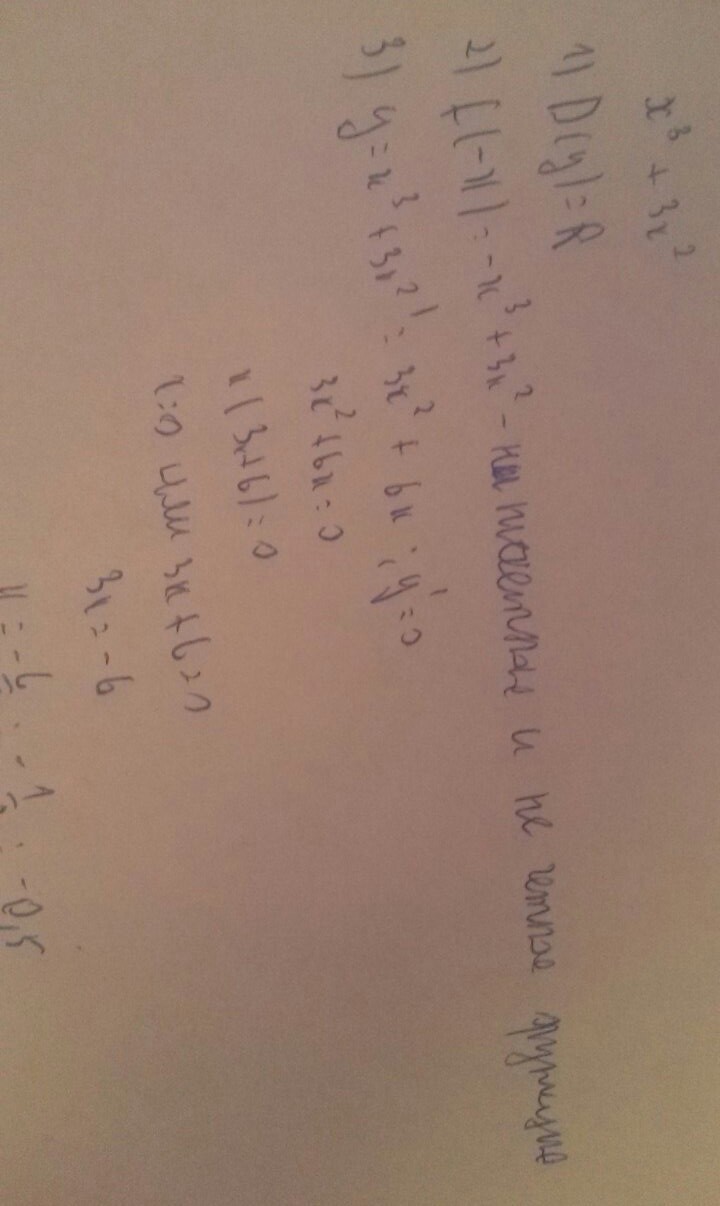 x³ + 3x²
1) D(y) = R
2) f(-x) = -x³ + 3x² - и не четная функция
3) y = x³ + 3x²' = 3x² + 6x ; y' = 0
3x² + 6x = 0
x(3x+6) = 0
x=0 или 3x+6=0
3x = -6
x = -6 = -1 = -0,5